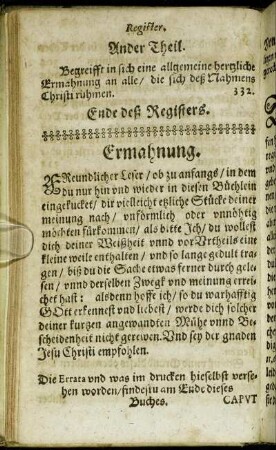 Register.
Ander Theil.
Begreifft in sich eine allgemeine hertzliche
Ermahnung an alle/ die sich deß Nahmens
Christi rühmen. 332.
Ende deß Registers.
Ermahnung.
FReundlicher Leser/ ob zu anfangs/ in dem
du nur hin vnd wieder in diesen Büchlein
eingekucket/ dir vielleicht etzliche Stücke deiner
meinung nach/ vnförmlich oder vnnöhtig
möchten fürkommen/ als bitte Ich/ du wollest
dich deiner Weißheit vnnd vor Vrtheils eine
kleine weile enthalten/ und so lange gedult tra-
gen/ biß du die Sache etwas ferner durch gele-
sen/ vnnd derselben Zwegk vnd meinung errei-
chet hast: alsdenn hoffe ich/ so du warhafftig
GOtt erkennest vnd liebest/ werde dich solcher
deiner kurtzen angewandten Mühe vnnd Be-
scheidenheit nicht gerewen. Vnd sey der gnaden
Jesu Christi empfohlen.
Die Errata vnd was im drucken hieselbst verse-
hen worden/ findestu am Ende dieses
Buches. CAPVT